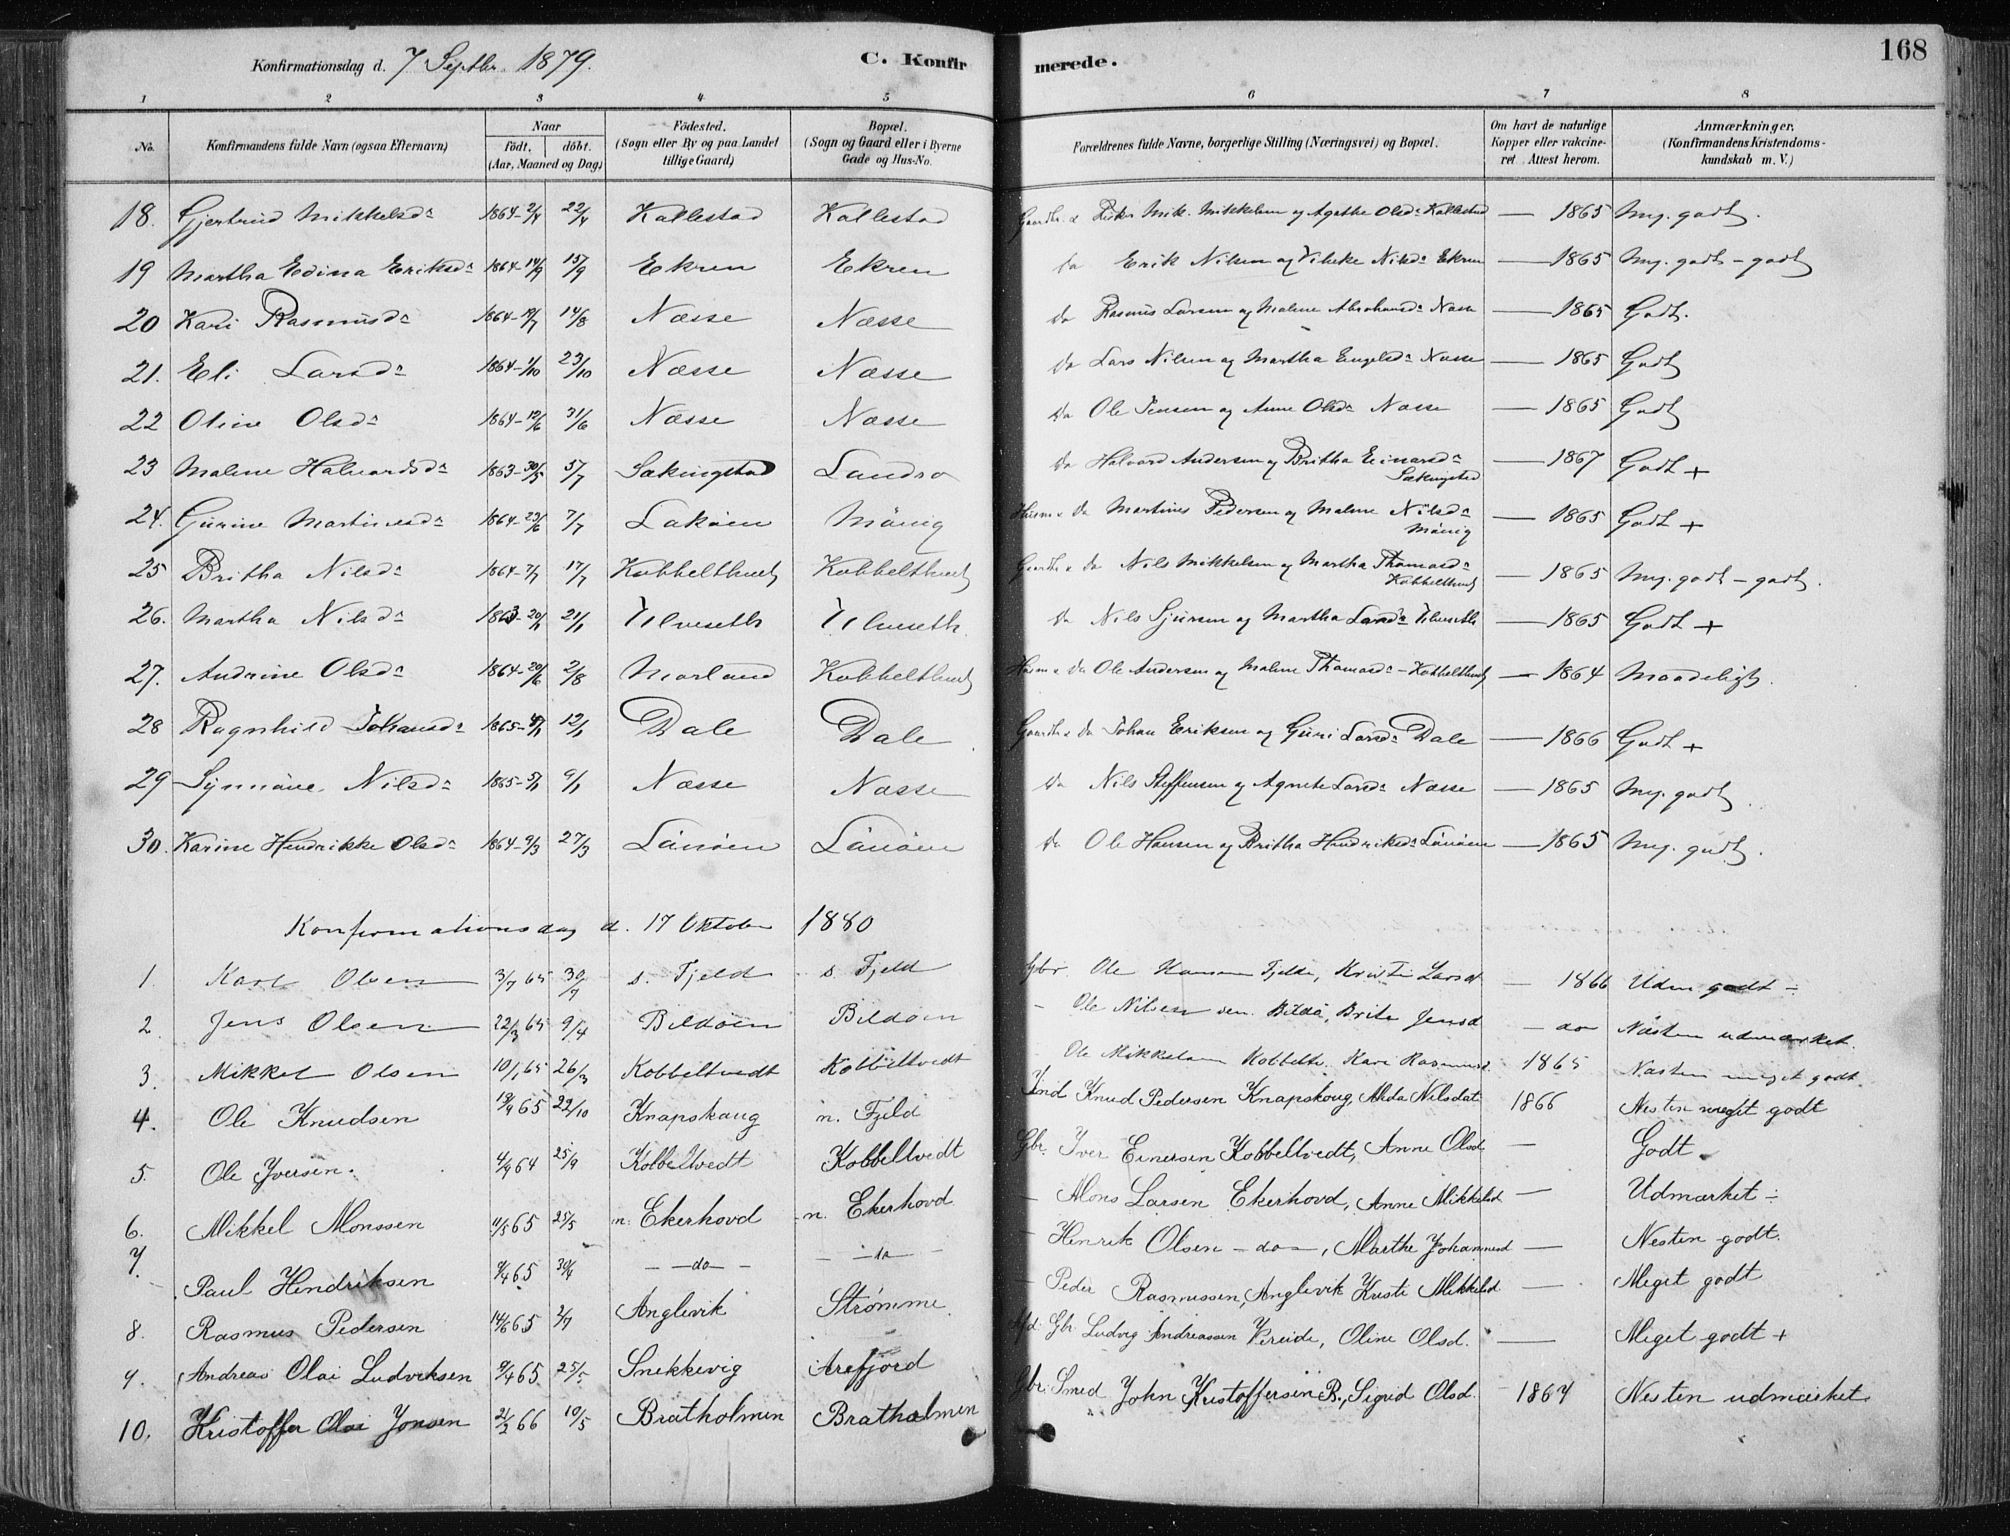 Konfirmationsdag d. 7 Septbr. 1879. C. Konfirmerede. 168
1 2 3 4 5 6 7 8
No. Konfirmandens fulde Navn (ogsaa Efternavn) Naar født, døbt. (Aar, Maaned og Dag) Fødested. (Sogn eller By og paa Landet tillige Gaard) Bopæl. (Sogn og Gaard eller i Byerne Gade og Hus-No. Forældrenes fulde Navne, borgerlige Stilling (Næringsvei) og Bopæl. Om havt de naturlige Kopper eller vakcineret. Attest herom. Anmærkninger. (Konfirmandens Kristendomskundskab m. V.)
18. Gjertrud Mikkelsd. 1864-2/4 22/4 Kallestad Kallestad Mik. Mikkelsen og Agathe Olsd. Kallestad — 1865 Mg. godt.
19 Martha Edina Eriksd. 1864-14/9 15/9 Ekren Ekren Do Erik Nilsen og Vibeke Nilsd. Ekren — 1865 Mg. godt - godt
20 Kari Rasmusd. 1864-19/7 14/8 Næsse Næsse Do Rasmus Larsen og Malene Abrahamsd. Næsse — 1865 Godt.
21. Eli Larsd. 1864-1/10 23/10 Næsse Næsse Do Lars Nilsen og Martha Engelsd. Næsse — 1865 Godt
22 Oline Olsd. 1864-12/6 31/6 Næsse Næsse Do Ole Jensen og Anne Olsd. Næsse — 1865 Godt
23 Malene Halvardsd. 1863-30/5 5/7 Sækingstad Landro Do Halvard Andersen og Britha Einarsd. Sækingstad — 1867 Godt +
24. Gurine Martinusd. 1864-23/6 7/7 Lokøen Møvig Husm. Do Martines Pedersen og Malene Nilsd. Møvig — 1865 Godt +
25 Britha Nilsd. 1864-7/7 17/7 Kobbeltvedt Kobbeltvedt Gaardbr. Do Nils Mikkelsen og Martha Thomasd. Kobbeltvedt — 1865 Mg. godt - godt.
26. Martha Nilsd. 1863-20/1 21/1 Ulveseth Ulveseth Do Nils Sjursen og Martha Larsd. Ulveseth — 1865 Godt +
27. Andrine Olsd. 1864-20/6 2/8 Morland Kobbeltvedt Husm. Do Ole Andersen og Malene Thomasd. - Kobbeltvedt — 1864 Maadeligt.
28 Ragnhild Johansd. 1865- 12/1 Dale Dale Gaardbr. Do Johan Eriksen og Guri Larsd. Dale — 1866 Godt +
29 Synnøve Nilsd. 1865-5/1 9/1 Næsse Næsse Do Nils Steffensen og Agnete Larsd. Næsse — 1865 Mg. godt.
30. Karine Hendrikke Olsd. 1864-9/3 27/3 Lønøen Lønøen Do Ole Hansen og Britha Hendriksd. Lønøen — 1865 Mg. godt.
Konfirmationsdag d. 17 Oktober 1880
1. Karl Olsen 3/7 65 30/7 s. Fjeld s. Fjeld Gbr. Ole Hansen Fjeld, Kristi Larsd — 1866 godt -
2. Jens Olsen 22/3 65 9/4 Bildøen Bildøen - Ole Nilsen sen. Bildø, Brite Jensd — do Næsten udmærket.
3. Mikkel Olsen 10/1 65 26/3 Kobbeltvedt Kobbeltvedt Ole Mikkelsen Kobbeltv. Kari Rasmusd. 1865 Næsten meget godt
4. Ole Knudsen 19/9 65 22/10 Knapskoug n. Fjeld Ind Knud Pedersen Knapskoug, Alida Nilsdat 1866 Nesten meget godt
5. Ole Yversen. 4/9 64 25/9 Kobbeltvedt Kobbeltvedt Gbr. Iver Einersen Kobbeltvedt, Anne Olsd — Godt
6. Mikkel Monssen 4/5 65 25/5 n. Ekerhovd n. Ekerhovd - Mons Larsen Ekerhovd, Anne Mikkelsd — Udmærket -
7. Paul Hendriksen 9/4 65 30/4 — do — — do — - Henrik Olsen — do —, Marthe Johannesd — Nesten godt.
8. Rasmus Pedersen 14/6 65 2/7 Anglevik Strømme - Peder Rasmussen, Anglevik Kristi Mikkelsd — Meget godt
9. Andreas Olai Ludviksen 9/4 65 25/5 Snekkevig Arefjord Gbr Ludvig Andreassen Vereide, Oline Olsd. — Meget godt +
10. Kristoffer Olai Jonsen 21/2 66 10/5 Bratholmen Bratholmen Gbr. Smed John Kristoffersen B., Sigrid Olsd. 1867 Nesten udmærket